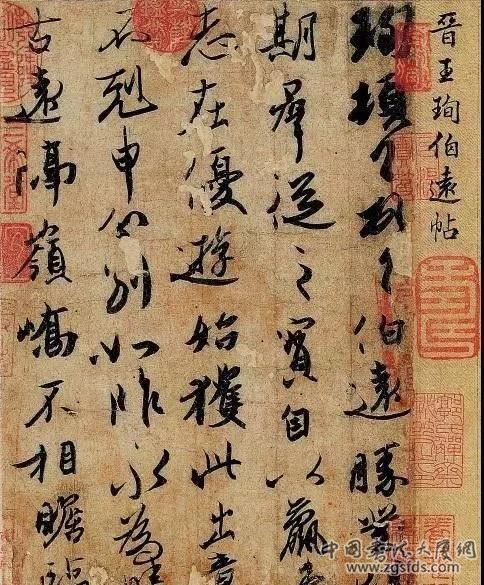 晉王珣伯遠帖
珣頓首頓首伯遠勝業
期群從之寶自以羸
志在優遊始獲此出意
不剋申分別如昨永為
古遠隔嶺嶠不相瞻臨
中国书法大厦网
www.zgsfds.com